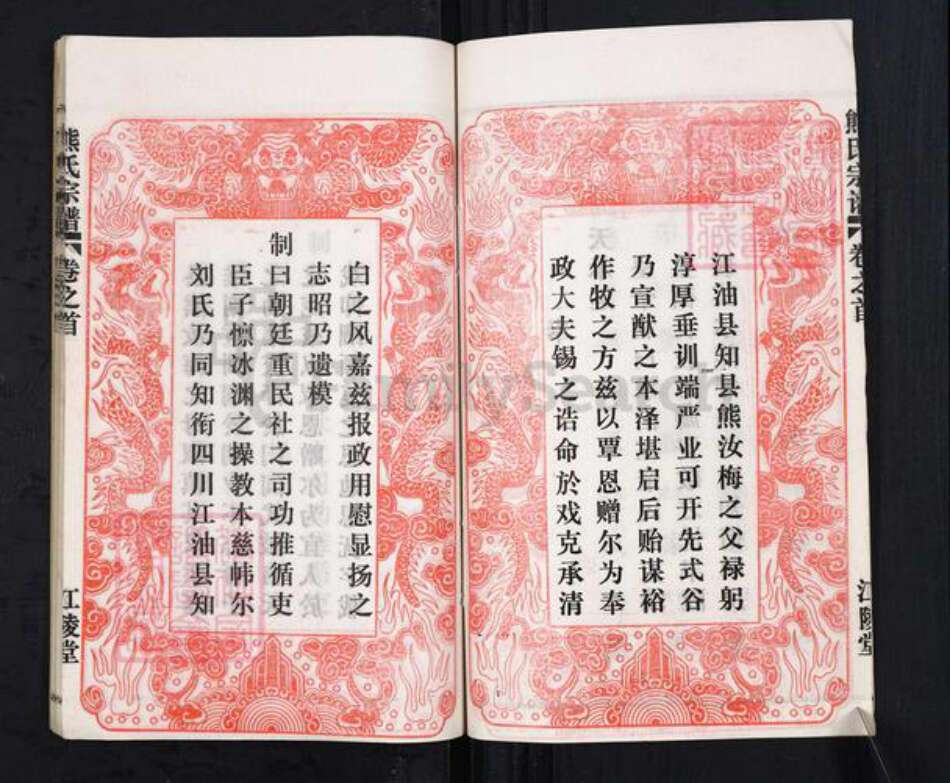 熊氏宗谱
卷之首
江陵堂
江油县知县熊汝梅之父禄躬
淳厚垂训端严业可开先式谷
乃宣猷之本泽堪启后贻谋裕
作牧之方兹以覃恩赠尔为奉
政大夫锡之诰命於戏克承清
白之风嘉兹报政用慰显扬之
志昭乃遗模
制曰朝廷重民社之司功推循吏
臣子懔冰渊之操教本慈帏尔
刘氏乃同知衔四川江油县知
熊氏宗谱
卷之首
江陵堂
FamilySearch